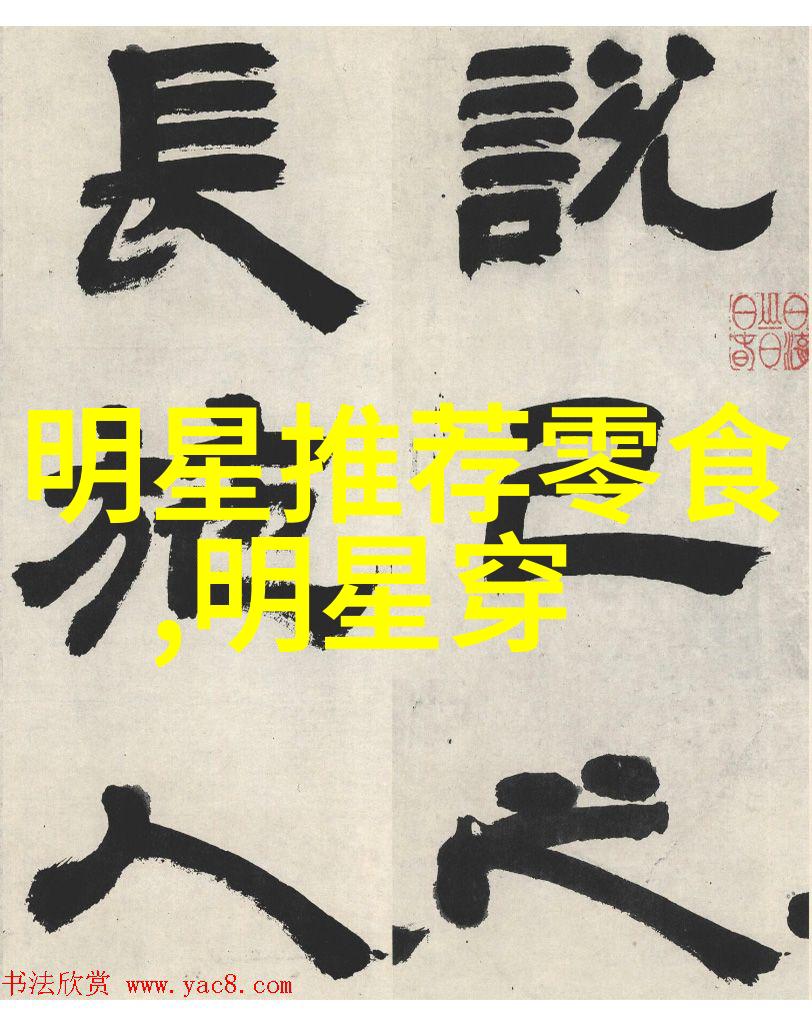 說己之
長施人
明星推荐零食
,明星穿
书法欣赏 www.yac8.com